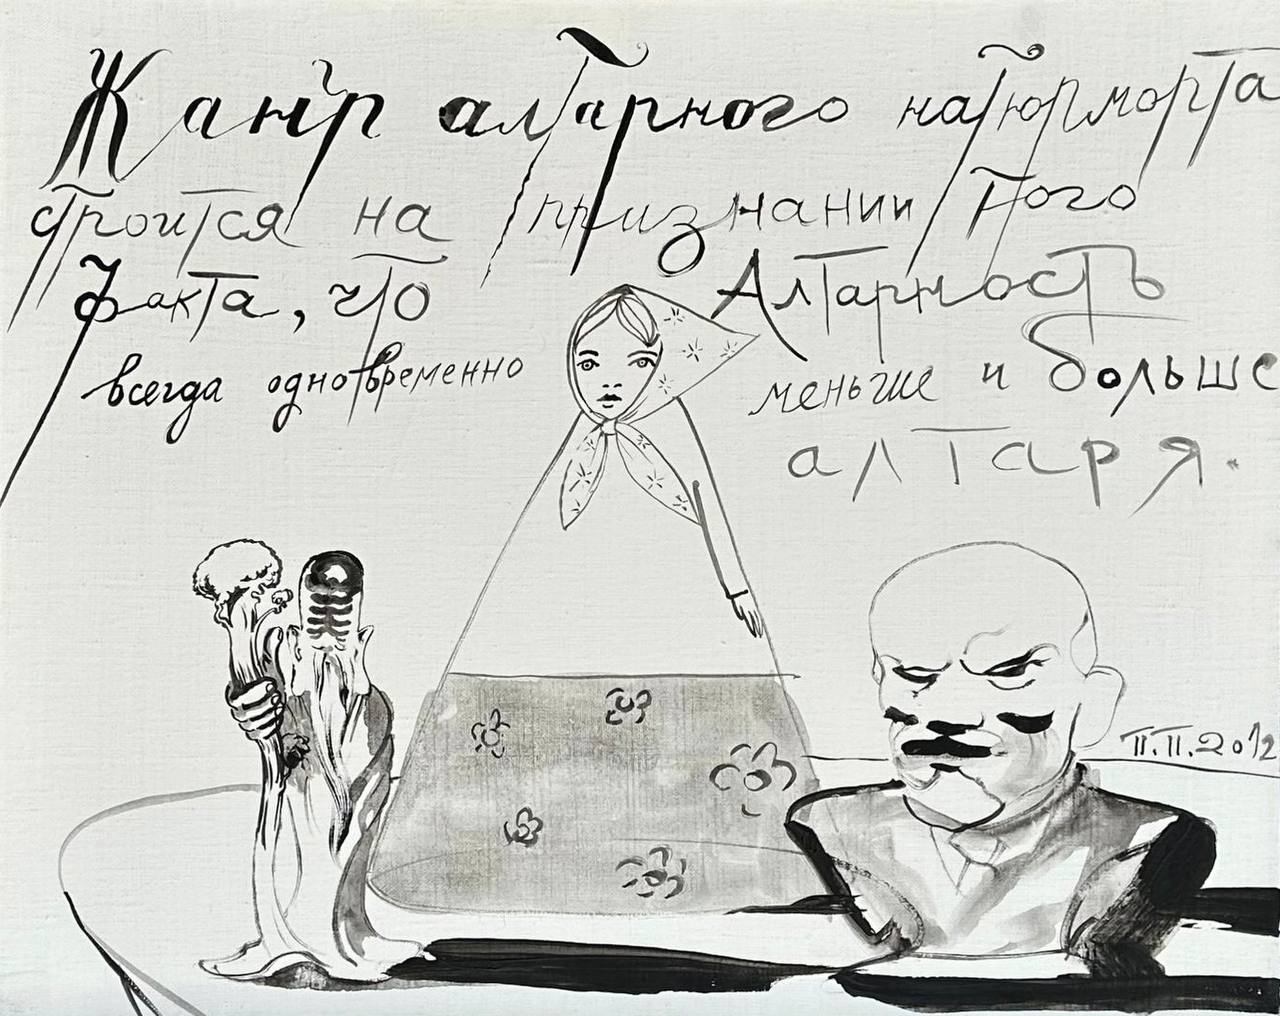 Жанр алтарного натюрморта
строится на признании того
факта, что Алтарность
всегда одновременно меньше и больше
алтаря.
П.П.2012